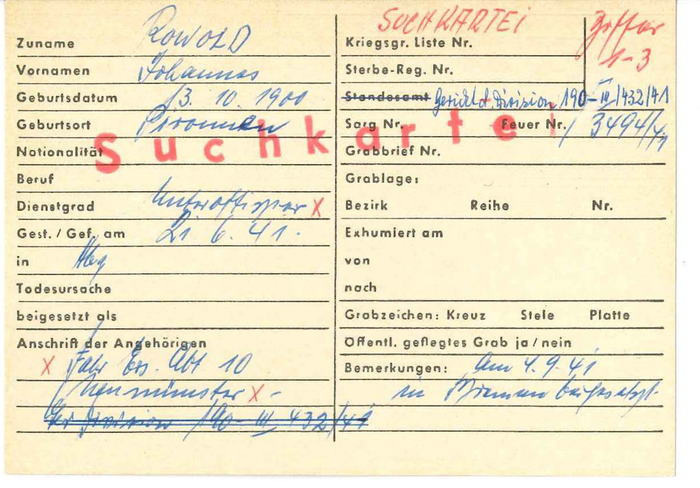 Zuname ROWOLD
Vornamen Johannes
Geburtsdatum 13. 10. 1900
Geburtsort
Nationalität
Beruf
Dienstgrad Unteroffizier X
Gest. / Gef. am 21 6. 41.
in Hbg
Todesursache
beigesetzt als
Anschrift der Angehörigen
X Fahr Ers. Abt 10
Neumünster X -
Ger Division 190 - III 432/41
Suchkartei
SUCHKARTEI
Ziffer
1-3
Kriegsgr. Liste Nr.
Sterbe-Reg. Nr.
Standesamt Gericht d. Division 190-III/432/41
Sarg Nr. Feuer Nr. 3494/41
Grabbrief Nr.
Grablage:
Bezirk Reihe Nr.
Exhumiert am
von
nach
Grabzeichen: Kreuz Stele Platte
Öffentl. gepflegtes Grab ja / nein
Bemerkungen: Am 4. 9. 41
in Bremen beigesetzt.